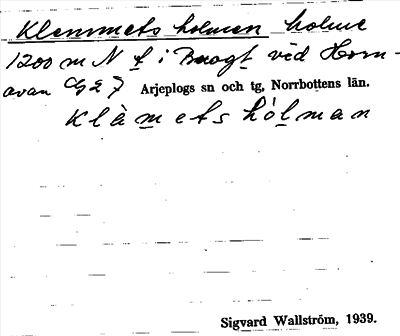 Klemmets holmen holme
1200 m N f i Buogt vid Horn-
avan G 2 7 Arjeplogs sn och tg, Norrbottens län.
Klàmets hólman
Sigvard Wallström, 1939.